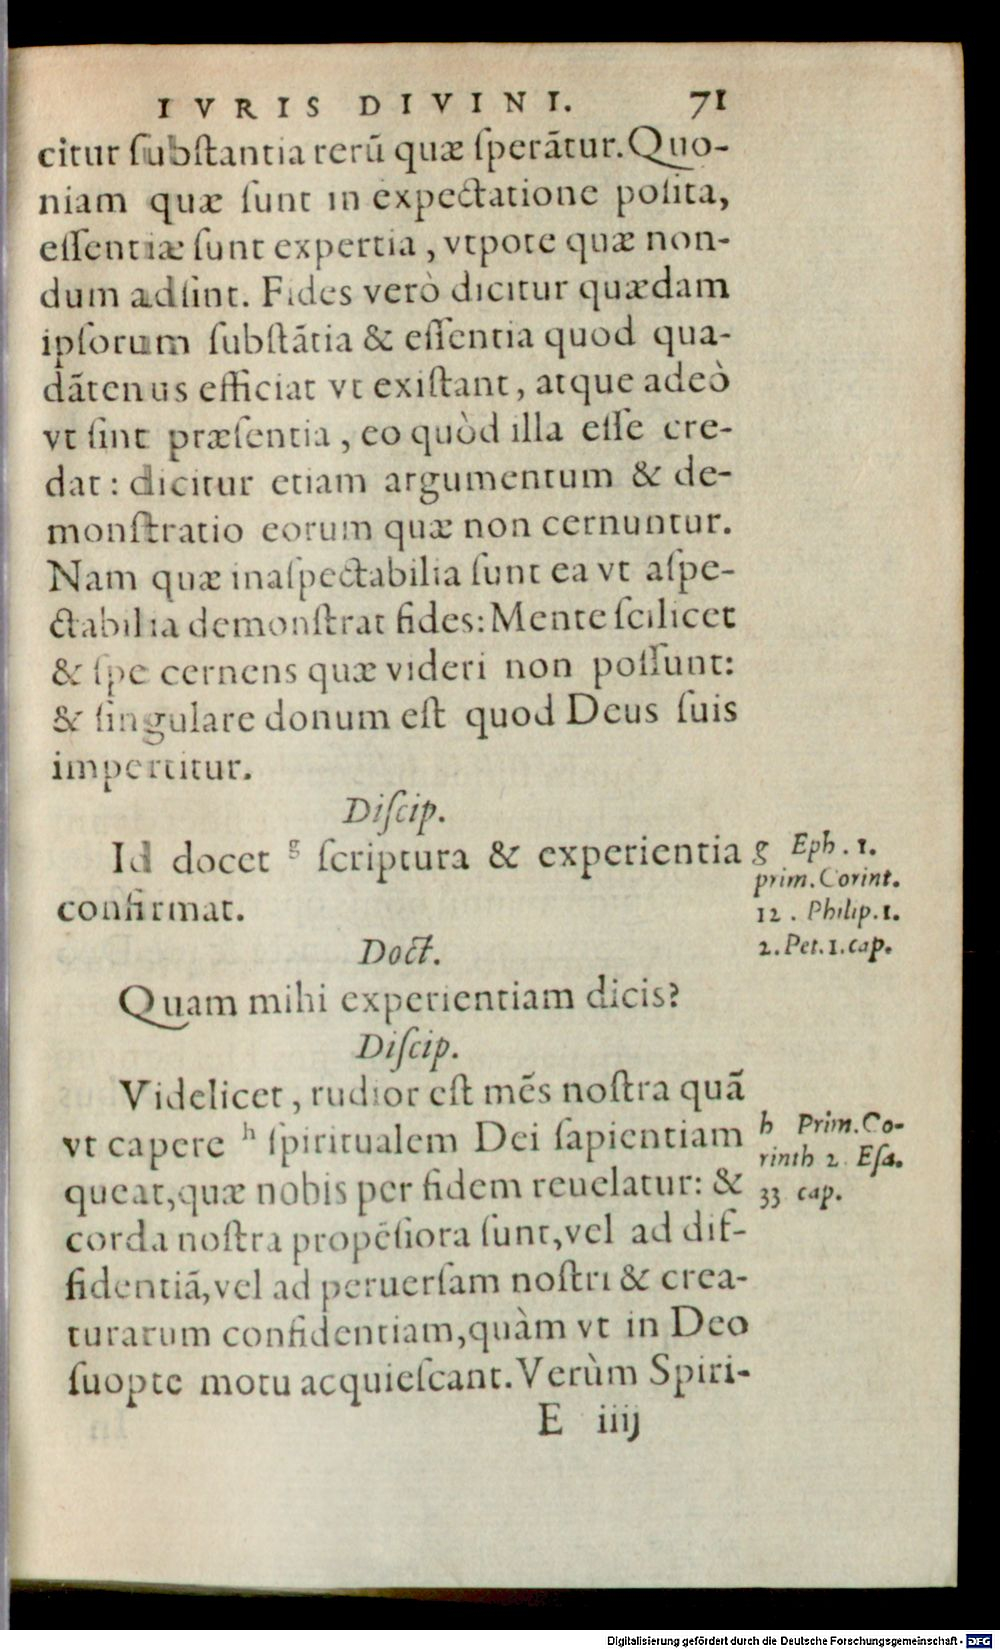 IVRIS DIVINI. 71
citur ſubſtantia rerū quæ ſperātur. Quo-
niam quæ ſunt in expectatione poſita,
eſſentiæ ſunt expertia, vtpote quæ non-
dum adſint. Fides verò dicitur quædam
ipſorum ſubſtātia & eſſentia quod qua-
dātenus efficiat vt exiſtant, atque adeò
vt ſint præſentia, eo quòd illa eſſe cre-
dat: dicitur etiam argumentum & de-
monſtratio eorum quæ non cernuntur.
Nam quæ inaſpectabilia ſunt ea vt aſpe-
ctabilia demonſtrat fides: Mente ſcilicet
& ſpe cernens quæ videri non poſſunt:
& ſingulare donum eſt quod Deus ſuis
impertitur.
Diſcip.
Id docet g ſcriptura & experientia
confirmat.
g Eph. 1.
prim. Corint.
12. Philip. 1.
2. Pet. 1. cap.
Doct.
Quam mihi experientiam dicis?
Diſcip.
Videlicet, rudior eſt mēs noſtra quā
vt capere h ſpiritualem Dei ſapientiam
queat, quæ nobis per fidem reuelatur: &
corda noſtra propēſiora ſunt, vel ad dif-
fidentiā, vel ad peruerſam noſtri & crea-
turarum confidentiam, quàm vt in Deo
ſuopte motu acquieſcant. Verùm Spiri-
h Prim. Co-
rinth 2. Eſa.
33 cap.
E iiij
Digitalisierung gefördert durch die Deutsche Forschungsgemeinschaft - DFG